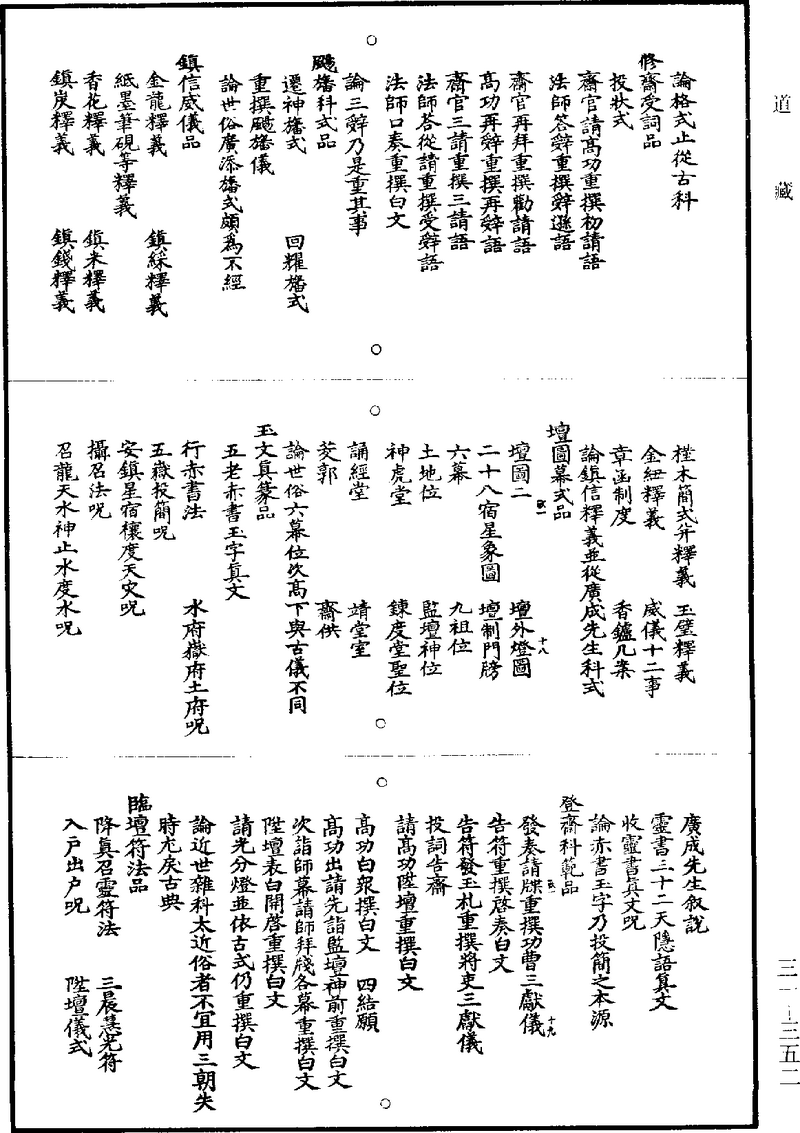 道藏
論格式止從古科
修齋受詞品
投狀式
齋官請高功重撰初請語
法師答辭重撰辭遜語
齋官再拜重撰勸請語
高功再辭重撰再辭語
齋官三請重撰三請語
法師答從請重撰受辭語
法師口奏重撰白文
論三辭乃是重其事
颺旛科式品
遷神旛式 回耀旛式
重撰颺旛儀
論世俗廣添旛式頗為不經
鎮信威儀品
金龍釋義 鎮綵釋義
紙墨筆硯等釋義
香花釋義 鎮米釋義
鎮炭釋義 鎮錢釋義
槿木簡式并釋義 玉璧釋義
金紐釋義 威儀十二事
章函制度 香鑪几案
論鎮信釋義並從廣成先生科式
壇圖幕式品
壇圖二 壇外燈圖 十八
二十八宿星象圖 壇制門牓
六幕 九祖位
土地位 監壇神位
神虎堂 鍊度堂聖位
誦經堂 靖堂室
茭郭 齋供
論世俗六幕位次高下與古儀不同
玉文真篆品
五老赤書玉字真文
行赤書法 水府嶽府土府呪
五嶽投簡呪
安鎮星宿禳度天灾呪
攝召法呪
召龍天水神止水度水呪
廣成先生叙說
靈書三十二天隱語真文
收靈書真文呪
論赤書玉字乃投簡之本源
登齋科範品
發奏請牒重撰功曹三獻儀 十九
告符重撰啓奏白文
告符發玉札重撰將吏三獻儀
投詞告齋
請高功陞壇重撰白文
高功白衆撰白文 四結願
高功出請先詣監壇神前重撰白文
次詣師幕請師拜牋各幕重撰白文
陞壇表白開啓重撰白文
請光分燈並依古式仍重撰白文
論近世雜科太近俗者不宜用三朝失
時尤戾古典
臨壇符法品
降真召靈符法 三晨慧光符
入戶出戶呪 陞壇儀式
三一—三五二